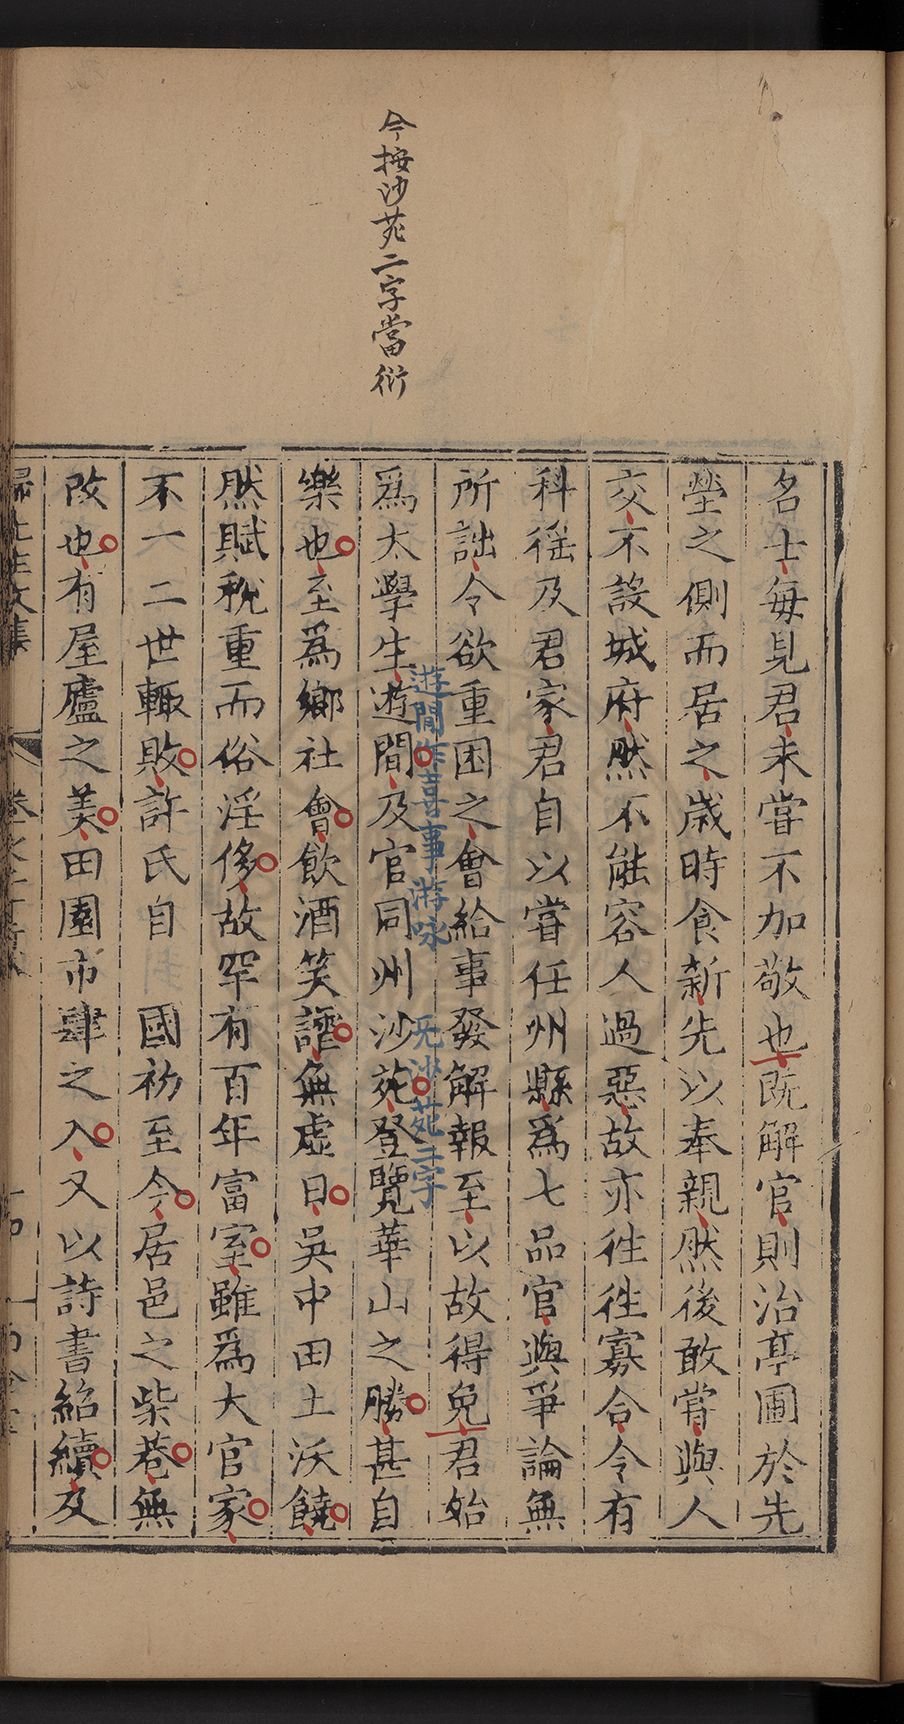 今按沙苑二字當衍
名士每見君未嘗不加敬也既解官則治亭圃於先
塋之側而居之歲時食新先以奉親然後敢嘗與人
交不設城府然不能容人過惡故亦往往寡合令有
科徭及君家君自以嘗任州縣為七品官與爭論無
所詘令欲重困之會給事發解報至以故得免君始
遊間作喜事游咏
无沙苑二字
為太學生遊間及官同州沙苑登覽華山之勝甚自
樂也至為鄉社會飲酒笑謔無虛日吳中田土沃饒
然賦稅重而俗淫侈故罕有百年富室雖為大官家
不一二世輒敗許氏自 國初至今居邑之柴巷無
改也有屋廬之美田園市肆之入又以詩書紹續及